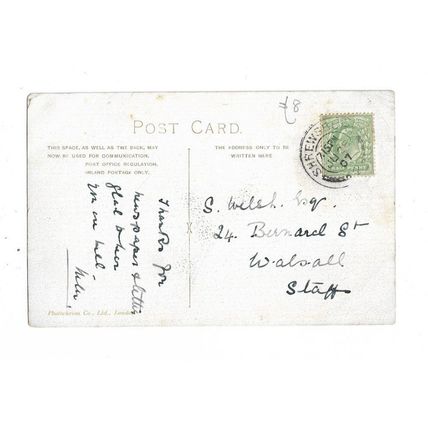 £8
POST CARD.
THIS SPACE, AS WELL AS THE BACK, MAY
NOW BE USED FOR COMMUNICATION.
POST OFFICE REGULATION.
INLAND POSTAGE ONLY.
THE ADDRESS ONLY TO BE
WRITTEN HERE
Thanks for
newspaper & letter
glad to hear
you are well
S. Welsh. Esq.
24. Bernard St
Walsall
Staffs
Photochrom Co., Ltd., London